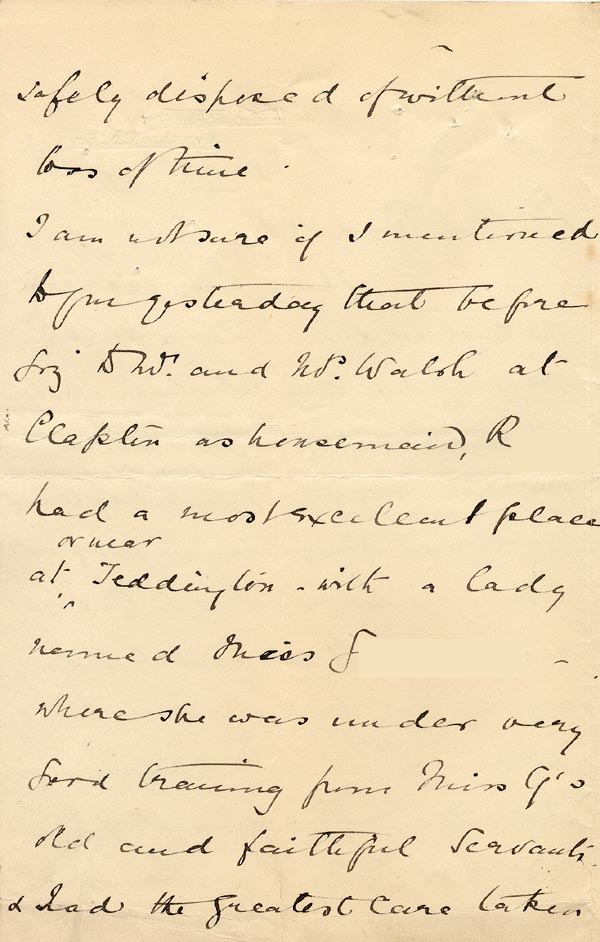 safely disposed of without
loss of time.
I am not sure if I mentioned
to you yesterday that before
going to Mr. and Mrs. Walsh at
Clapton as housemaid, R
had a most excellent place
or near
at Teddington - with a lady
named Miss G
where she was under very
good training from Miss G's
old and faithful servants.
& had the greatest care taken